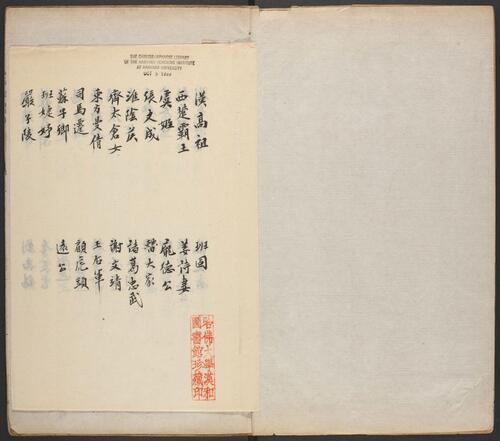 THE CHINESE-JAPANESE LIBRARY
OF THE HARVARD-YENCHING INSTITUTE
AT HARVARD UNIVERSITY
OCT 5 1939
漢高祖
西楚霸王
虞姬
張文成
淮陰侯
齊太倉女
東方曼倩
司馬遷
蘇子卿
班婕妤
嚴子陵
班固
姜詩妻
龐德公
曹大家
諸葛忠武
謝文靖
王右軍
顧虎頭
遠公
哈佛大學漢和
圖書館珍藏印